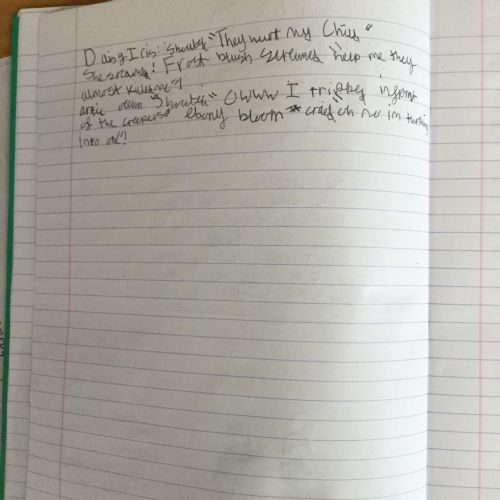 Daisy Iris: Shouted "They hurt my Chies"
She screams! Frost blush screamed "help me they
almost killed me"!
artic dawn Shouted "Owww I tripped infront
of the creepers" ebony bloom cried "oh no im turning
into one"!